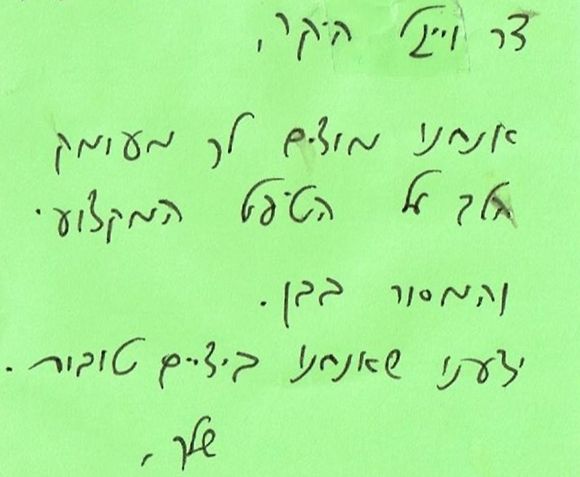 דר ווייגל היקר,
אנחנו מודים לך מעומק
הלב על הטיפול המקצועי
והמסור בבן.
ידענו שאנחנו בידיים טובות.
שלך,